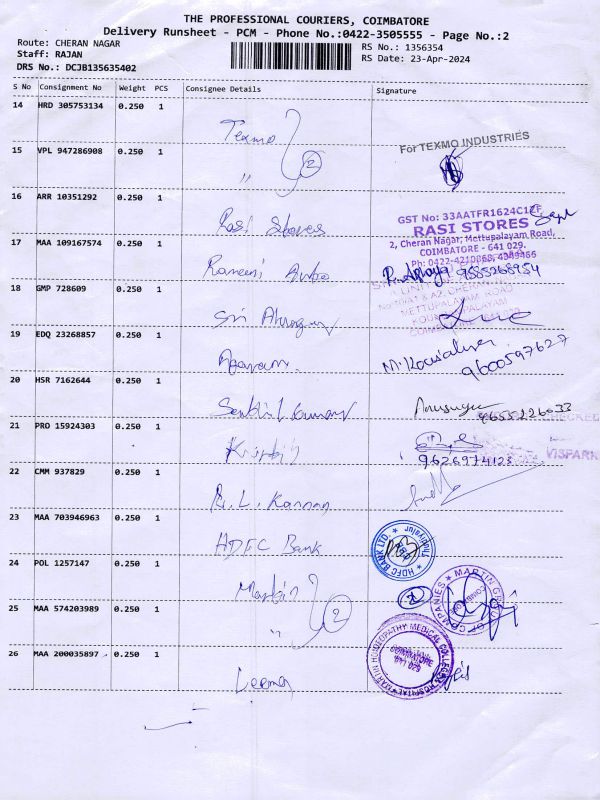 THE PROFESSIONAL COURIERS, COIMBATORE
Delivery Runsheet - PCM - Phone No.:0422-3505555 - Page No.:2
Route: CHERAN NAGAR
Staff: RAJAN
DRS No.: DCJB135635402
RS No.: 1356354
RS Date: 23-Apr-2024
S No Consignment No Weight PCS Consignee Details Signature
14 HRD 305753134 0.250 1 Texmo
For TEXMO INDUSTRIES
15 VPL 947286908 0.250 1 " 2
16 ARR 10351292 0.250 1 Rasi Stores
GST No: 33AATFR1624C1ZF
RASI STORES
2, Cheran Nagar, Mettupalayam Road,
COIMBATORE - 641 029.
Ph: 0422-4210868, 4049466
17 MAA 109167574 0.250 1 Auto
9585268954
METTUPALAYAM ROAD
18 GMP 728609 0.250 1 Sri
19 EDQ 23268857 0.250 1
M. Kousalya
9600597627
20 HSR 7162644 0.250 1 Senthil Kumar
Anusuya
9655226033
21 PRO 15924303 0.250 1
9626974123
VISPARK
22 CMM 937829 0.250 1 R. L. Kannan
23 MAA 703946963 0.250 1 HDFC Bank
HDFC BANK LTD.
24 POL 1257147 0.250 1 Martin
2
MARTIN GROUP OF COMPANIES
25 MAA 574203989 0.250 1 " 2
MARTIN HOMOEOPATHY MEDICAL COLLEGE & HOSPITAL
COIMBATORE
641 029
26 MAA 200035897 0.250 1 Leema